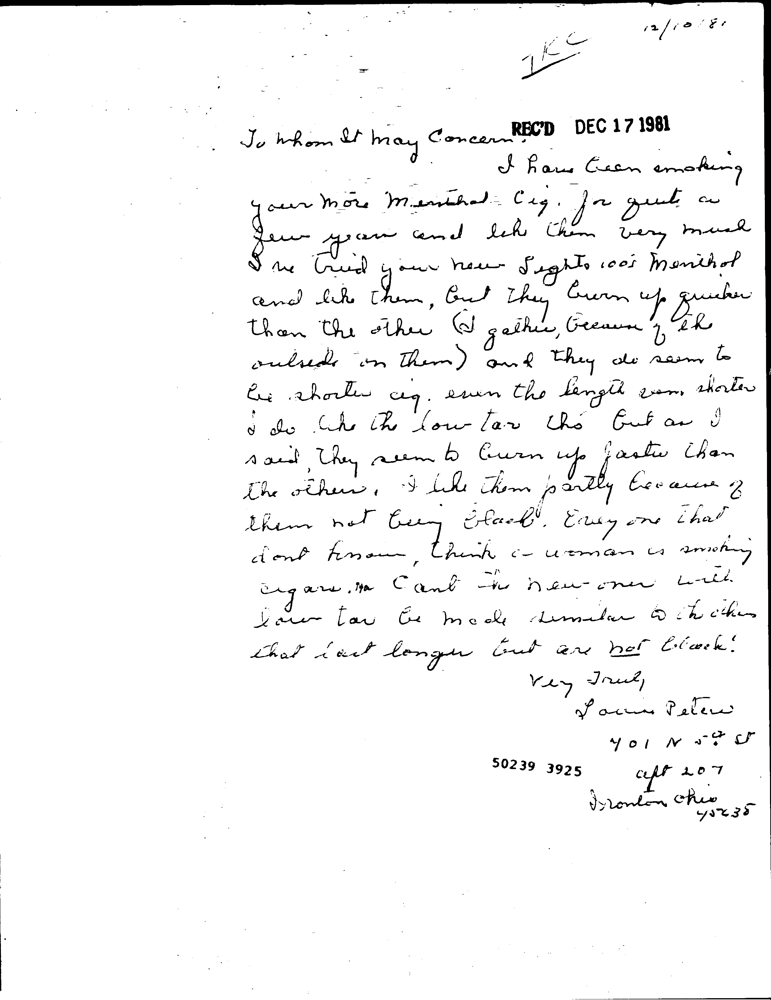 12/10/81
TKC
REC'D DEC 17 1981
To Whom It May Concern:
I have been smoking
your More Menthol Cig. for quite a
few years and like them very much
I've tried your new Lights 100's Menthol
and like them, but they burn up quicker
than the other (I gather, because of the
outside on them) and they do seem to
be shorter cig. even the length seems shorter
I do like the low tar tho but as I
said, they seem to burn up faster than
the others, I like them partly because of
them not being black. Every one that
dont know, think a woman is smoking
cigars. Cant the new ones with
low tar be made similar to the others
that last longer but are not black!
Very Truly
Peters
701 N 5th St
50239 3925
apt 207
Ironton Ohio